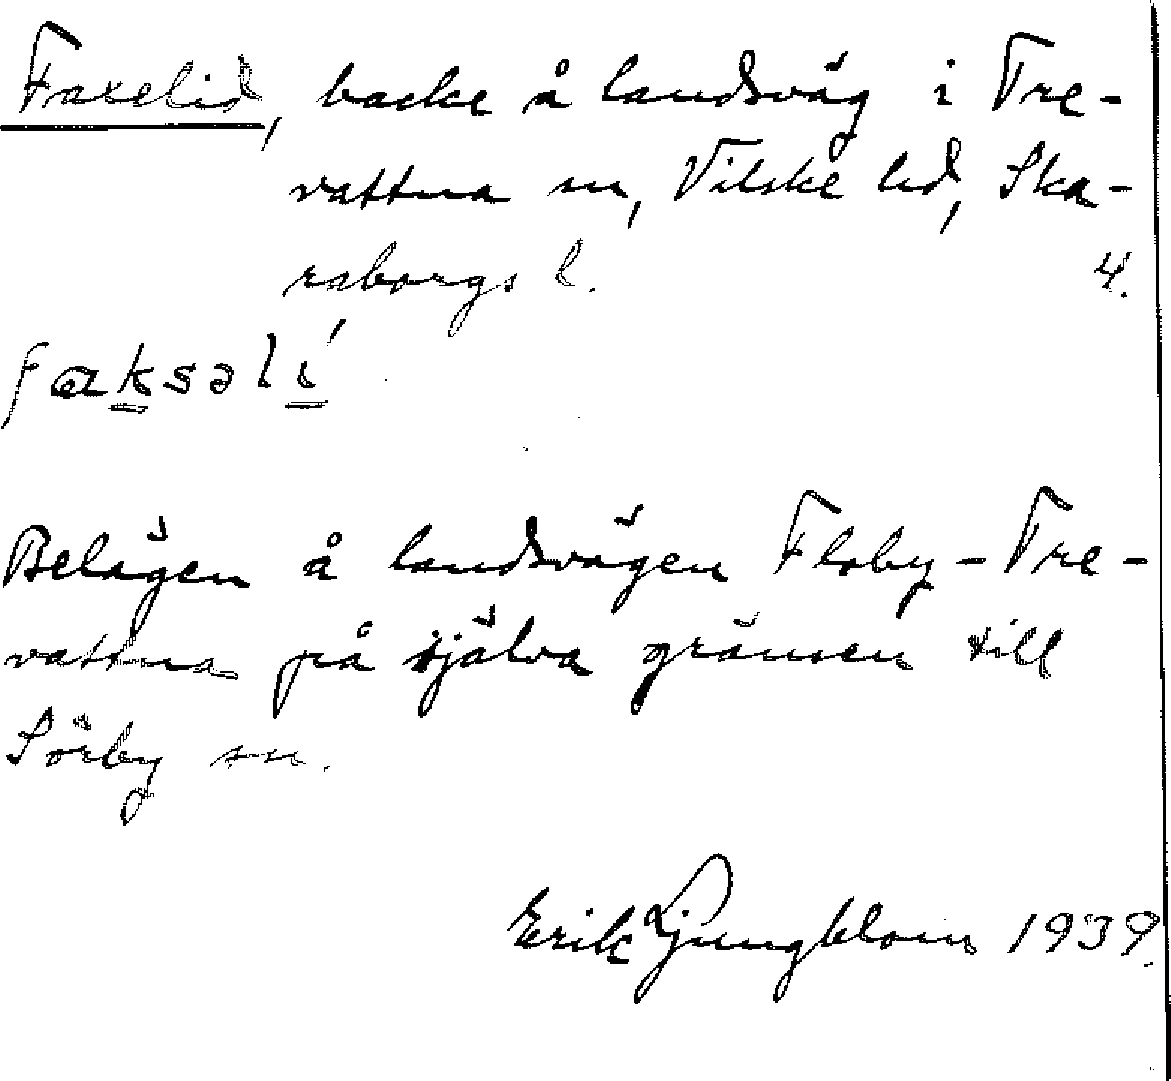 Faxelid, backe å landsväg i Tre-
vattna sn, Vilske hd, Ska-
raborgs l. 4.
faksəlí
Belägen å landsvägen Floby-Tre-
vattna på själva gränsen till
Sörby sn.
Erik Ljungblom 1939.